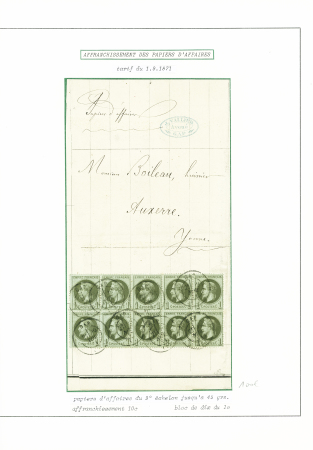 AFFRANCHISSEMENT DES PAPIERS D'AFFAIRES
tarif du 1.9.1871
Papiers d'affaires
Monsieur Boileau, huissier
Auxerre.
Yonne.
papiers d'affaires du 3° échelon jusqu'à 45 grs.
affranchissement 10c bloc de dix du 1c